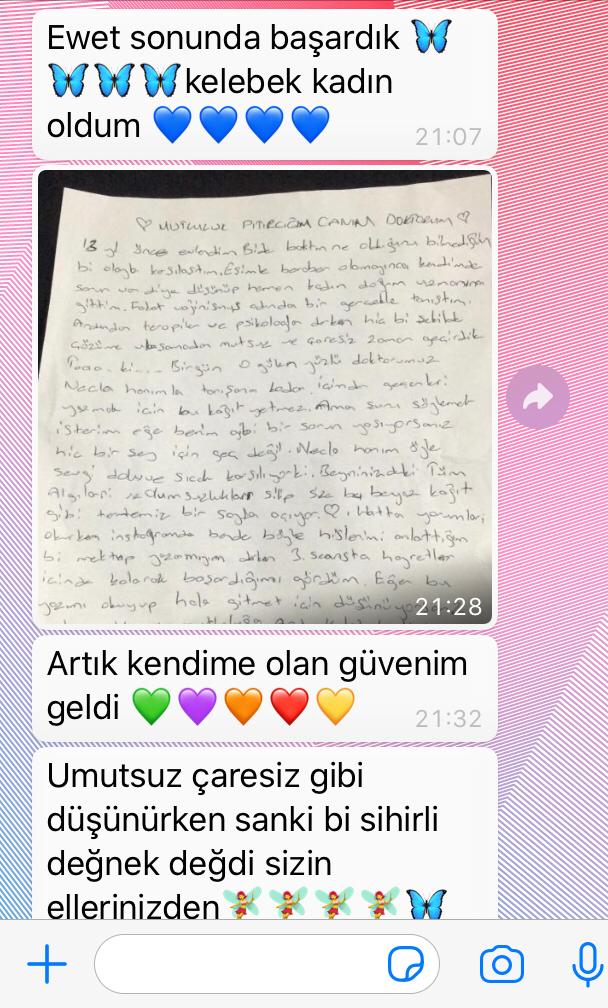 Ewet sonunda başardık 🦋
🦋🦋🦋kelebek kadın
oldum 💙💙💙💙
21:07
♡ MUTLULUK PITIRCIĞIM CANIM DOKTORUM ♡
13 yıl önce evlendim Bizde baktım ne olduğunu bilmediğim
bi olayla karşılaştım. Eşimle beraber olamayınca kendimde
sorun var diye düşünüp hemen kadın doğum uzmanına
gittim. Fakat vajinismus adında bir gerçekle tanıştım.
Ardından terapiler ve psikologlar derken hiç bi şekilde
çözüme ulaşamadan mutsuz ve çaresiz zaman geçirdik
Taaa.. ki.... Birgün o gülen yüzlü doktorumuz
Necla hanımla tanışana kadar. içimden geçenleri
yazmak için bu kağıt yetmez. Ama şunu söylemek
isterim eğer benim gibi bir sorun yaşıyorsanız
hiç bir şey için geç değil. Necla hanım öyle
sevgi dolu ve sıcak karşılıyorki. Beyninizdeki Tüm
Algıları ve olumsuzlukları silip size bu beyaz kağıt
gibi tertemiz bir sayfa açıyor. ♡. Hatta yorumları
okurken instagramda bende böyle hislerimi anlattığım
bi mektup yazamıyım derken 3. seansta hayretler
içinde kalarak başardığımı gördüm. Eğer bu
yazımı okuyup hala gitmek için
21:28
Artık kendime olan güvenim
geldi 💚💜🧡❤️💛
21:32
Umutsuz çaresiz gibi
düşünürken sanki bi sihirli
değnek değdi sizin
ellerinizden🧚🧚🧚🧚🦋